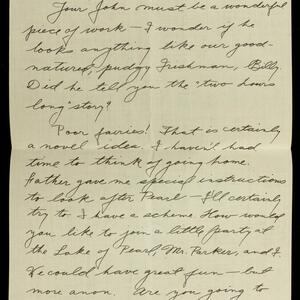 Your John must be a wonderful
piece of work – I wonder if he
looks anything like our good-
natured, pudgy Freshman, Billy.
Did he tell you the "two hours
long" story?
Poor fairies! That is certainly
a novel idea. I haven't had
time to think of going home.
Father gave me special instructions
to look after Pearl – I'll certainly
try to. I have a scheme. How would
you like to join a little party at
the Lake of Pearl, Mr. Parker, and I.
We could have great fun – but
more anon. Are you going to